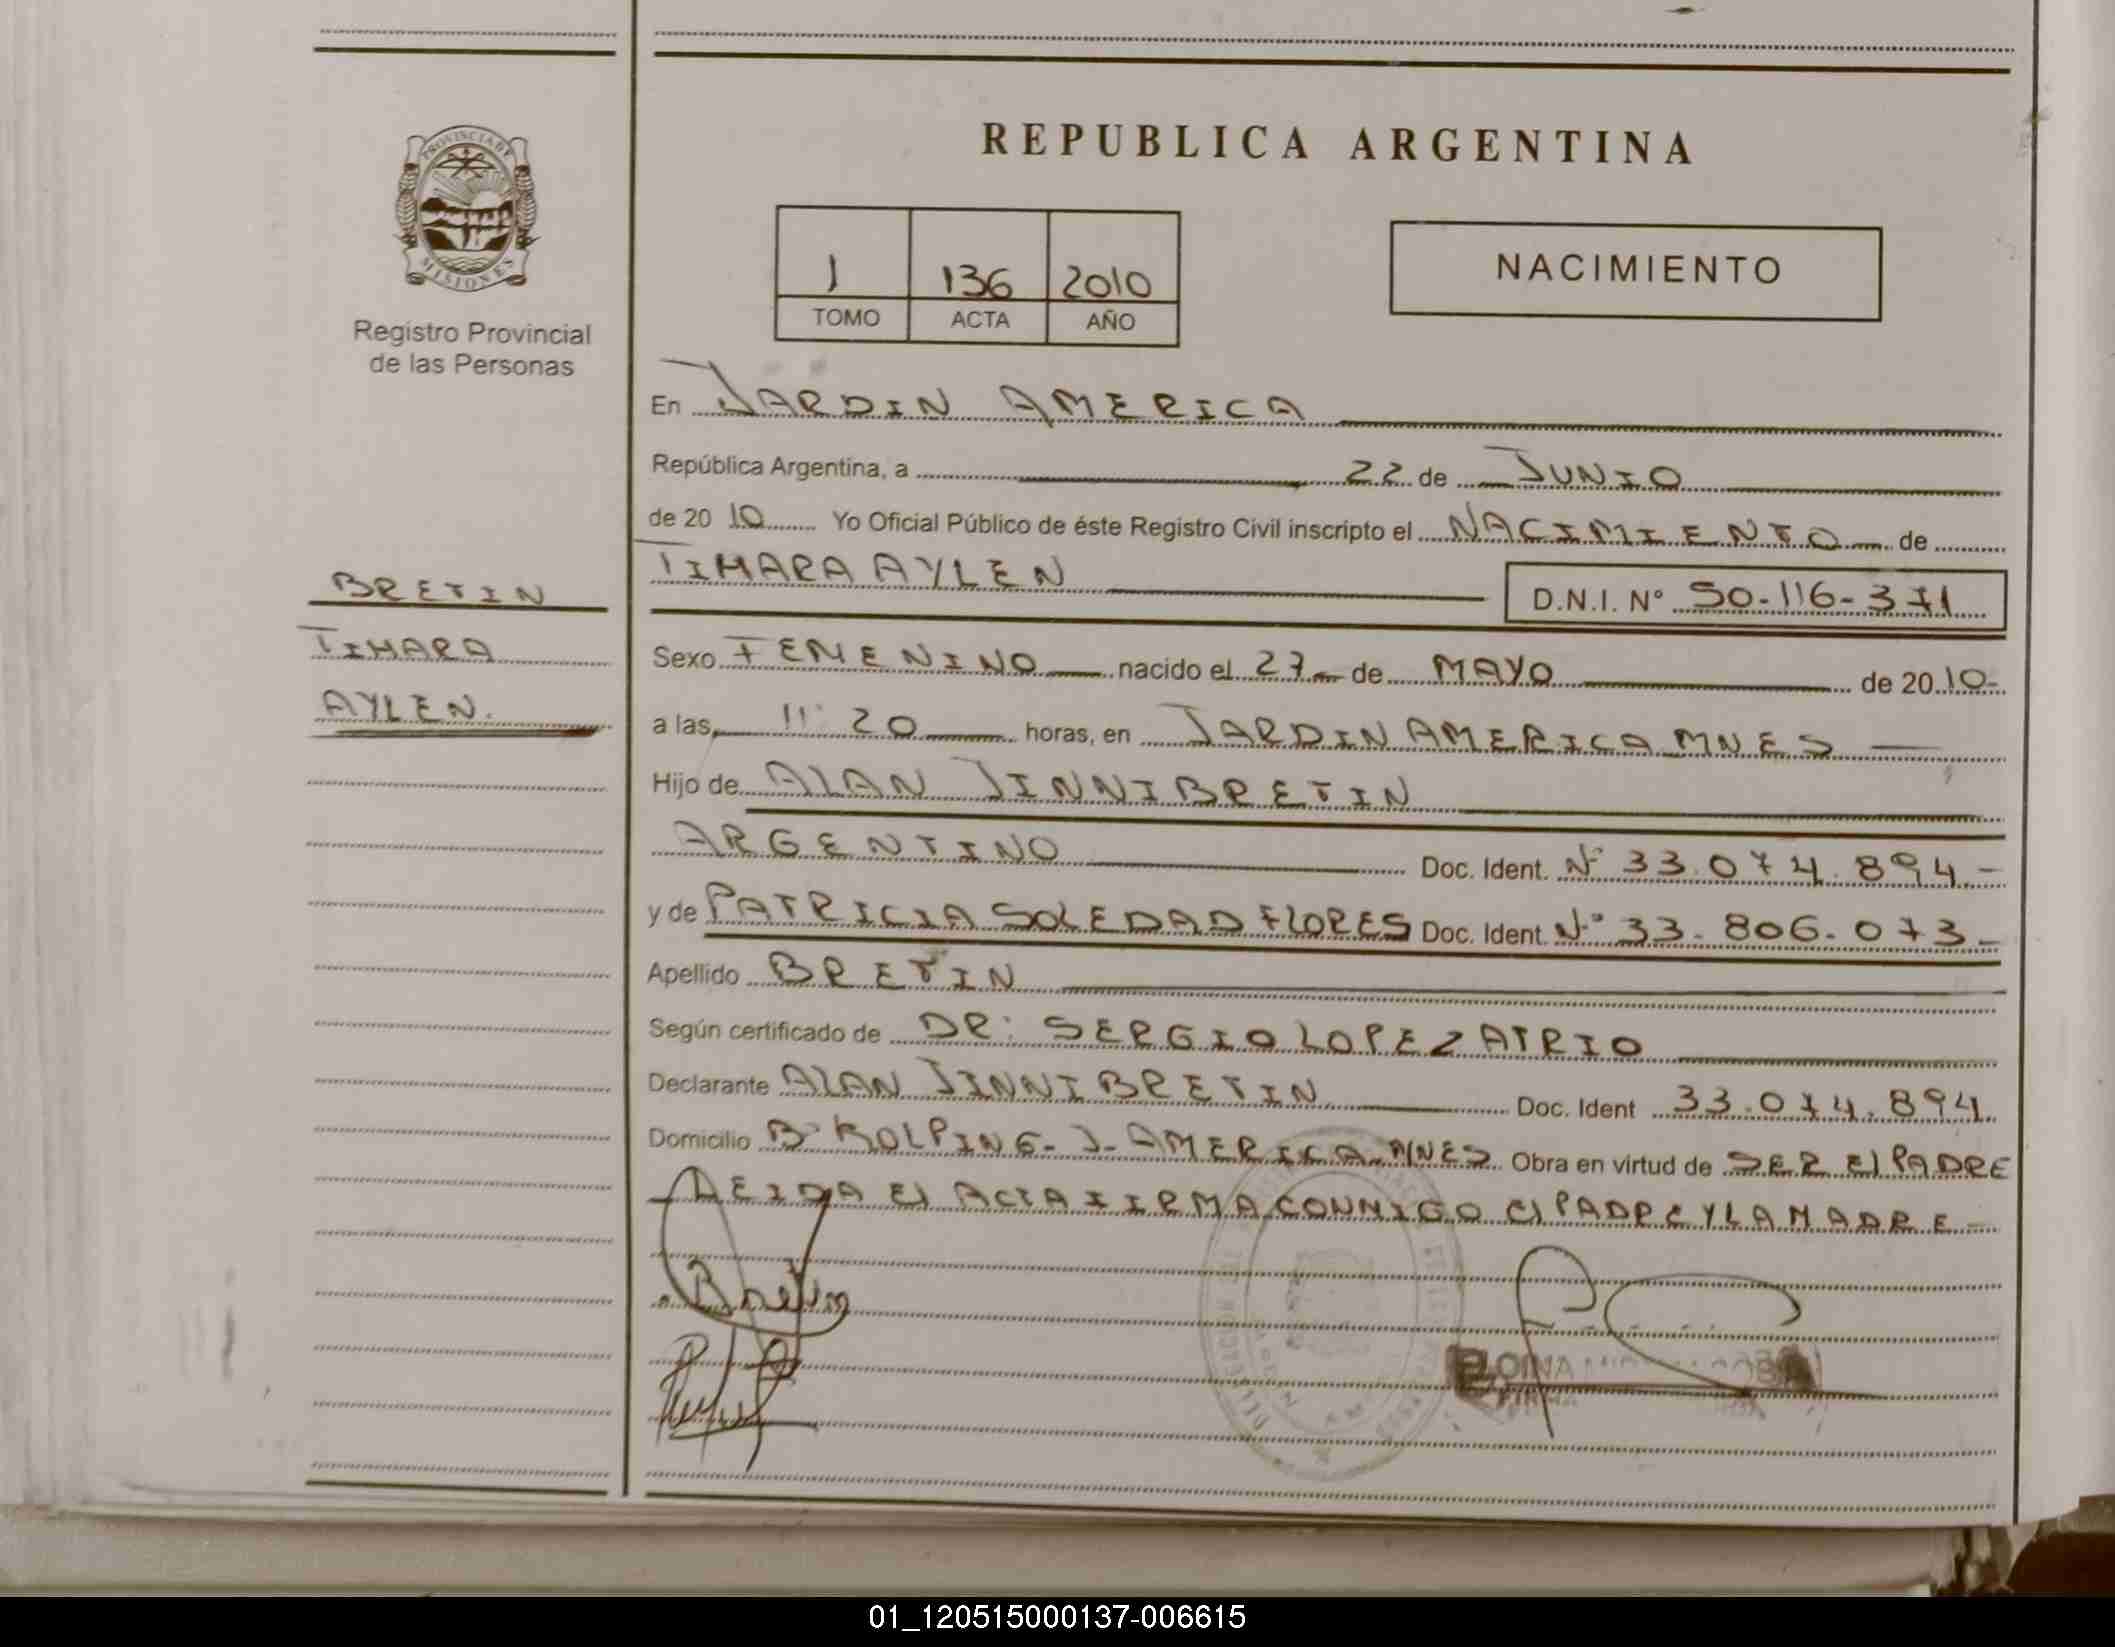 REPUBLICA ARGENTINA
PROVINCIA DE
MISIONES
Registro Provincial
de las Personas
1 136 2010
TOMO ACTA AÑO
NACIMIENTO
En JARDIN AMERICA
República Argentina, a 22 de JUNIO
de 20 10 Yo Oficial Público de éste Registro Civil inscripto el NACIMIENTO de
TIHARA AYLEN
D.N.I. N° 50-116-371
BRETIN
TIHARA
AYLEN.
Sexo FEMENINO nacido el 27 de MAYO de 20 10-
a las 11 20 horas, en JARDIN AMERICA MNES
Hijo de ALAN JINNI BRETIN
ARGENTINO Doc. Ident. N° 33.074.894-
y de PATRICIA SOLEDAD FLORES Doc. Ident. N° 33-806-073-
Apellido BRETIN
Según certificado de DR: SERGIO LOPEZ ATRIO
Declarante ALAN JINNI BRETIN Doc. Ident 33.074.894
Domicilio B° KOLPING-J-AMERICA-MNES Obra en virtud de SER El PADRE
LEIDA El ACTA FIRMA CONMIGO El PADRE Y LA MADRE-
Bretin
01_120515000137-006615